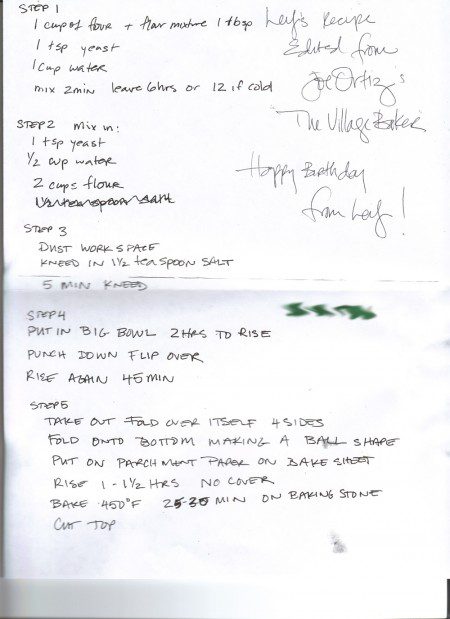 STEP 1
1 cup of flour + flour mixture 1 tbsp
1 tsp yeast
1 cup water
mix 2min leave 6hrs or 12 if cold
Leif's Recipe
Edited from
Joe Ortiz's
The Village Baker
Happy Birthday
from Leif!
STEP 2 Mix in:
1 tsp yeast
1/2 cup water
2 cups flour
1/2 teaspoon salt
STEP 3
DUST WORK SPACE
KNEED IN 1 1/2 teaSPOON SALT
5 MIN KNEED
STEP 4
PUT IN BIG BOWL 2HRS TO RISE
PUNCH DOWN FLIP OVER
RISE AGAIN 45 MIN
STEP 5
TAKE OUT FOLD OVER ITSELF 4 SIDES
FOLD ONTO BOTTOM MAKING A BALL SHAPE
PUT ON PARCHMENT PAPER ON BAKE SHEET
RISE 1 - 1 1/2 HRS NO COVER
BAKE 450°F 25-30 MIN ON BAKING STONE
CUT TOP